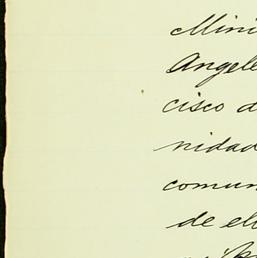 Mini
Angele
cisco d
nidad
comun
de ell